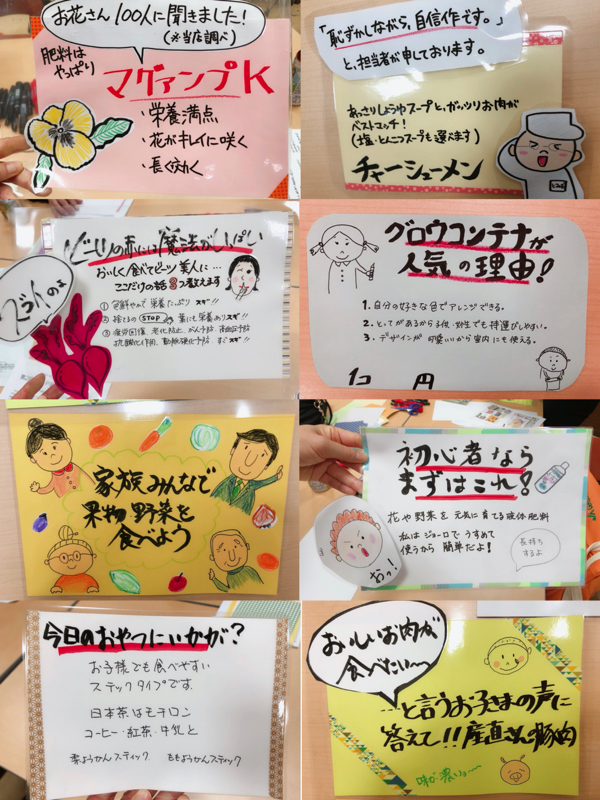 お花さん100人に聞きました!
(※当店調べ)
肥料は
やっぱり
マグァンプK
・栄養満点
・花がキレイに咲く
・長く効く
「恥ずかしながら、自信作です。」
と、担当者が申しております。
あっさりしょうゆスープと、ガッツリお肉が
ベストマッチ!
(塩・とんこつスープも選べます)
チャーシューメン
ビーツの赤には魔法がいっぱい
おいしく食べてビーツ美人に…
ここだけの話3つ教えます
スゴイのよ
①色鮮やかで栄養たっぷり スゲ!!
②捨てるのSTOP 葉にも栄養あり スゲ!!
③疲労回復、老化防止、がん予防、高血圧予防
抗酸化作用、動脈硬化予防
グロウコンテナが
人気の理由!
1.自分の好きな色でアレンジできる。
2.とってがあるから子供・女性でも持運びしやすい。
3.デザインが可愛いいから室内にも使える。
1コ 円
家族みんなで
果物野菜を
食べよう
初心者なら
まずはこれ!
花や野菜を元気に育てる液体肥料
私はジョーロでうすめて
使うから簡単だよ!
長持ち
するよ
おっ!
今日のおやつにいかが?
お子様でも食べやすい
スティックタイプです.
日本茶はモチロン
コーヒー・紅茶・牛乳と
栗ようかんスティック ももようかんスティック
おいしいお肉が
食べたい〜
…と言うお子さまの声に
答えて!!産直さんの豚肉
味が濃いよ〜